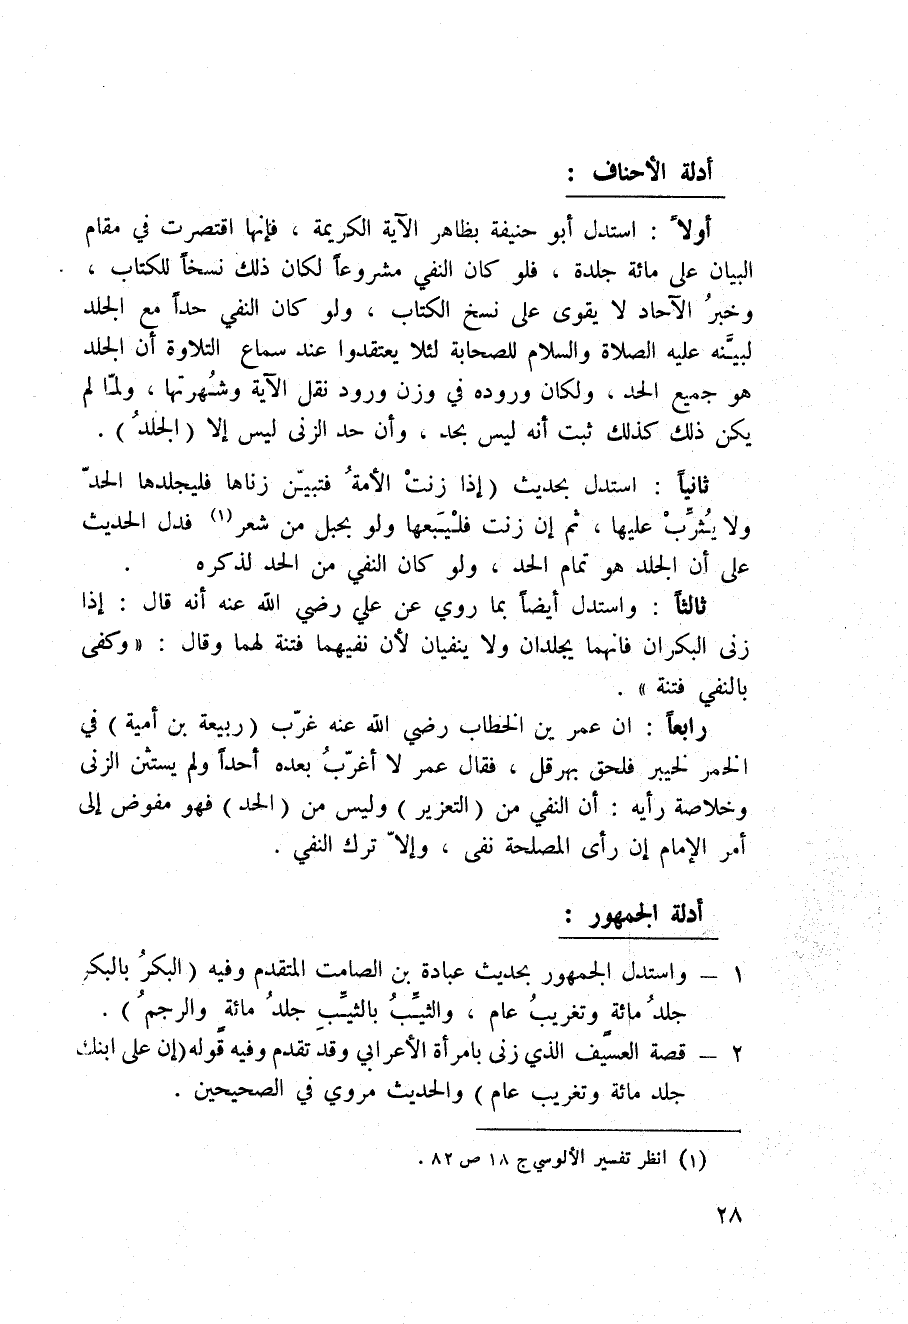 أدلة الأحناف :
أولاً : استدل أبو حنيفة بظاهر الآية الكريمة ، فإنها اقتصرت في مقام
البيان على مائة جلدة ، فلو كان النفي مشروعاً لكان ذلك نسخاً للكتاب ،
وخبرُ الآحاد لا يقوى على نسخ الكتاب ، ولو كان النفي حداً مع الجلد
لبيَّنه عليه الصلاة والسلام للصحابة لئلا يعتقدوا عند سماع التلاوة أن الجلد
هو جميع الحد ، ولكان وروده في وزن ورود نقل الآية وشُهرتها ، ولمّا لم
يكن ذلك كذلك ثبت أنه ليس بحد ، وأن حد الزنى ليس إلا ( الجلدُ ) .
ثانياً : استدل بحديث ( إذا زنتْ الأمةُ فتبيّن زناها فليجلدها الحدّ
ولا يُثرِّبْ عليها ، ثم إن زنت فلْيَبعها ولو بحبل من شعر (١) فدل الحديث
على أن الجلد هو تمام الحد ، ولو كان النفي من الحد لذكره .
ثالثاً : واستدل أيضاً بما روي عن علي رضي الله عنه أنه قال : إذا
زنى البكران فانهما يجلدان ولا ينفيان لأن نفيهما فتنة لهما وقال : « وكفى
بالنفي فتنة » .
رابعاً : ان عمر بن الخطاب رضي الله عنه غرّب ( ربيعة بن أمية ) في
الخمر لخيبر فلحق بهرقل ، فقال عمر لا أغرّبُ بعده أحداً ولم يستثن الزنى
وخلاصة رأيه : أن النفي من ( التعزير ) وليس من ( الحد ) فهو مفوض إلى
أمر الإمام إن رأى المصلحة نفى ، وإلاّ ترك النفي .
أدلة الجمهور :
١ – واستدل الجمهور بحديث عبادة بن الصامت المتقدم وفيه ( البكرُ بالبكر
جلدُ مائةٍ وتغريبُ عام ، والثيِّبُ بالثيِّبِ جلدُ مائةٍ والرجمُ ) .
٢ – قصة العسيف الذي زنى بامرأة الأعرابي وقد تقدم وفيه قوله (إن على ابنك
جلد مائة وتغريب عام ) والحديث مروي في الصحيحين .
(١) انظر تفسير الألوسي ج ١٨ ص ٨٢ .
٢٨